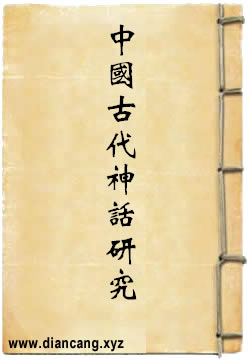 中國古代神話研究
www.diancang.xyz